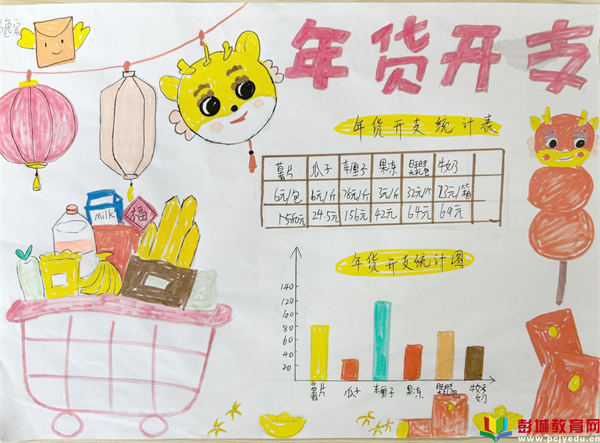 年货开支
年货开支统计表
薯片 瓜子 车厘子 果冻 旺旺大礼包 牛奶
6元/包 6元/斤 78元/斤 3元/斤 32元/个 23元/箱
24.5元 156元 42元 64元 69元
Milk
福
年货开支统计图
140
120
100
80
60
40
20
薯片 瓜子 车厘子 果冻 旺旺大礼包 牛奶
彭城教育网
www.pcjyedu.cn